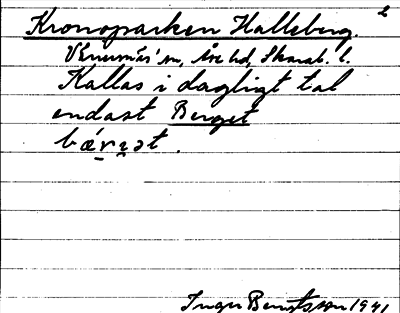 Kronoparken Halleberg. 2
Vänersn:s sn, Åse hd, Skarab. l.
Kallas i dagligt tal
endast Berget
bǽrɡət.
Inger Bengtsson 1941